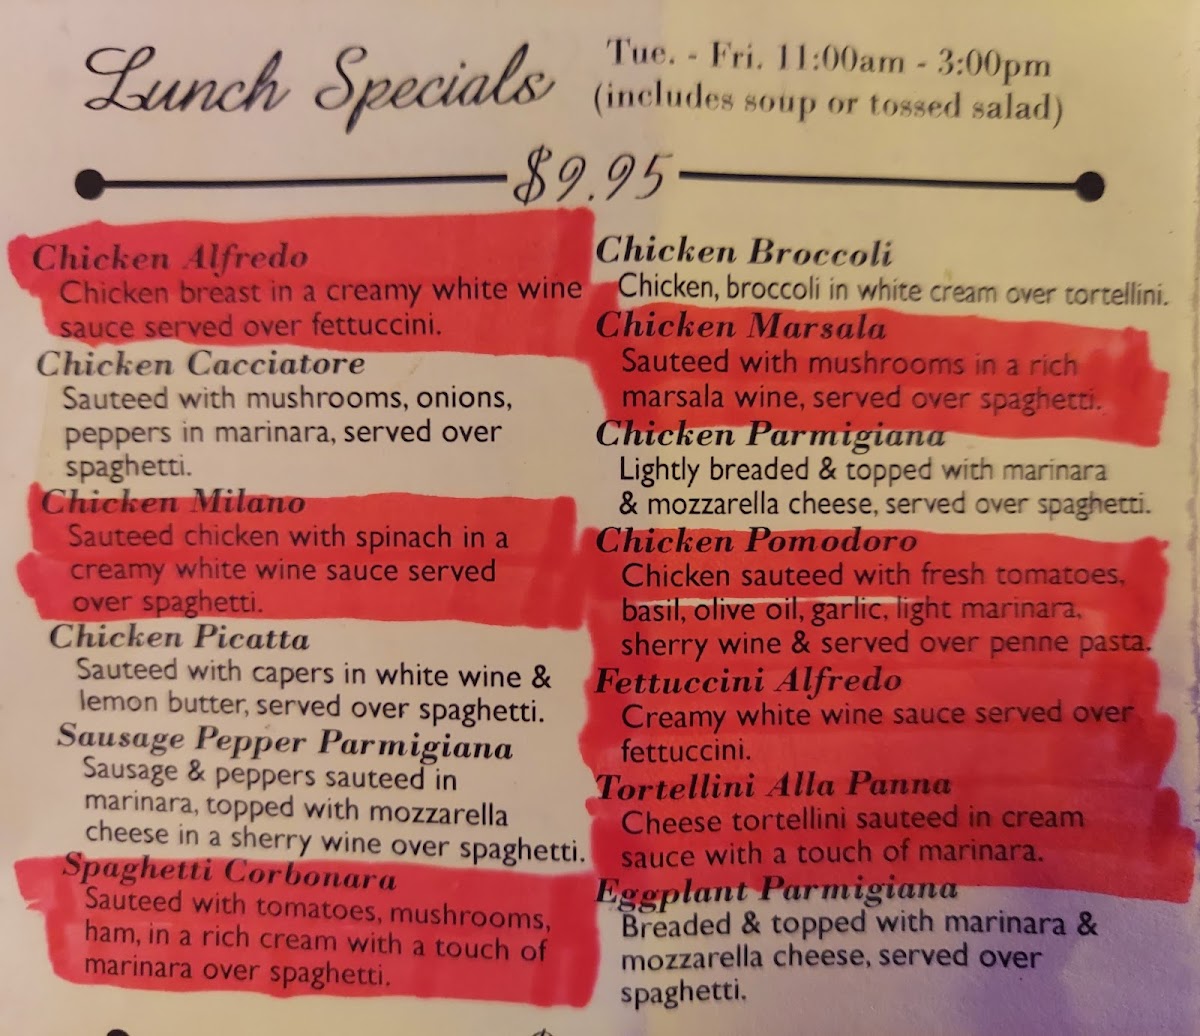 Lunch Specials
Tue. - Fri. 11:00am - 3:00pm
(includes soup or tossed salad)
$9.95
Chicken Alfredo
Chicken breast in a creamy white wine
sauce served over fettuccini.
Chicken Cacciatore
Sauteed with mushrooms, onions,
peppers in marinara, served over
spaghetti.
Chicken Milano
Sauteed chicken with spinach in a
creamy white wine sauce served
over spaghetti.
Chicken Picatta
Sauteed with capers in white wine &
lemon butter, served over spaghetti.
Sausage Pepper Parmigiana
Sausage & peppers sauteed in
marinara, topped with mozzarella
cheese in a sherry wine over spaghetti.
Spaghetti Corbonara
Sauteed with tomatoes, mushrooms,
ham, in a rich cream with a touch of
marinara over spaghetti.
Chicken Broccoli
Chicken, broccoli in white cream over tortellini.
Chicken Marsala
Sauteed with mushrooms in a rich
marsala wine, served over spaghetti.
Chicken Parmigiana
Lightly breaded & topped with marinara
& mozzarella cheese, served over spaghetti.
Chicken Pomodoro
Chicken sauteed with fresh tomatoes,
basil, olive oil, garlic, light marinara,
sherry wine & served over penne pasta.
Fettuccini Alfredo
Creamy white wine sauce served over
fettuccini.
Tortellini Alla Panna
Cheese tortellini sauteed in cream
sauce with a touch of marinara.
Eggplant Parmigiana
Breaded & topped with marinara &
mozzarella cheese, served over
spaghetti.